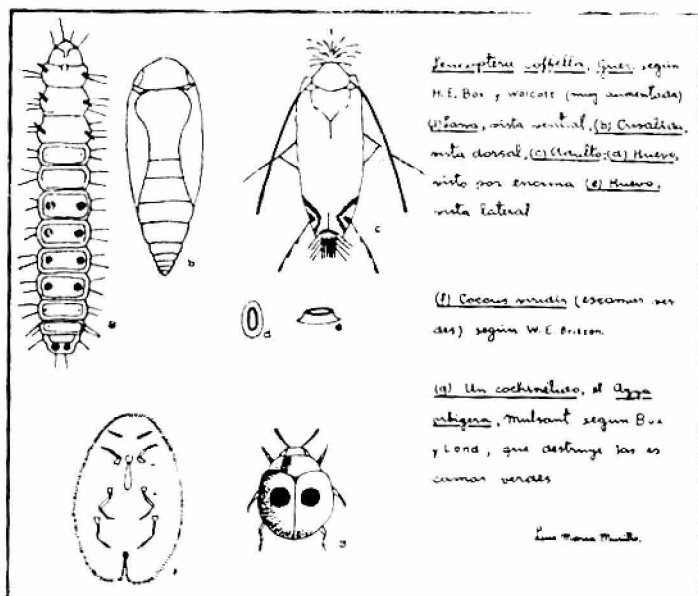 Leucoptera coffella, Guer. según
H.E. Box y Wolcott (muy aumentada)
(a) Larva, vista ventral, (b) Crisálida,
vista dorsal, (c) Adulto; (d) Huevo,
visto por encima (e) Huevo,
vista lateral
(f) Coccus viridis (escamas ver
des) según W.E. Britton.
(g) Un cochinélido, el Azya
orbigera, Mulsant según Box
y Lond, que destruye las es
camas verdes
Luis Maria Murillo.
a
b
c
d
e
f
g